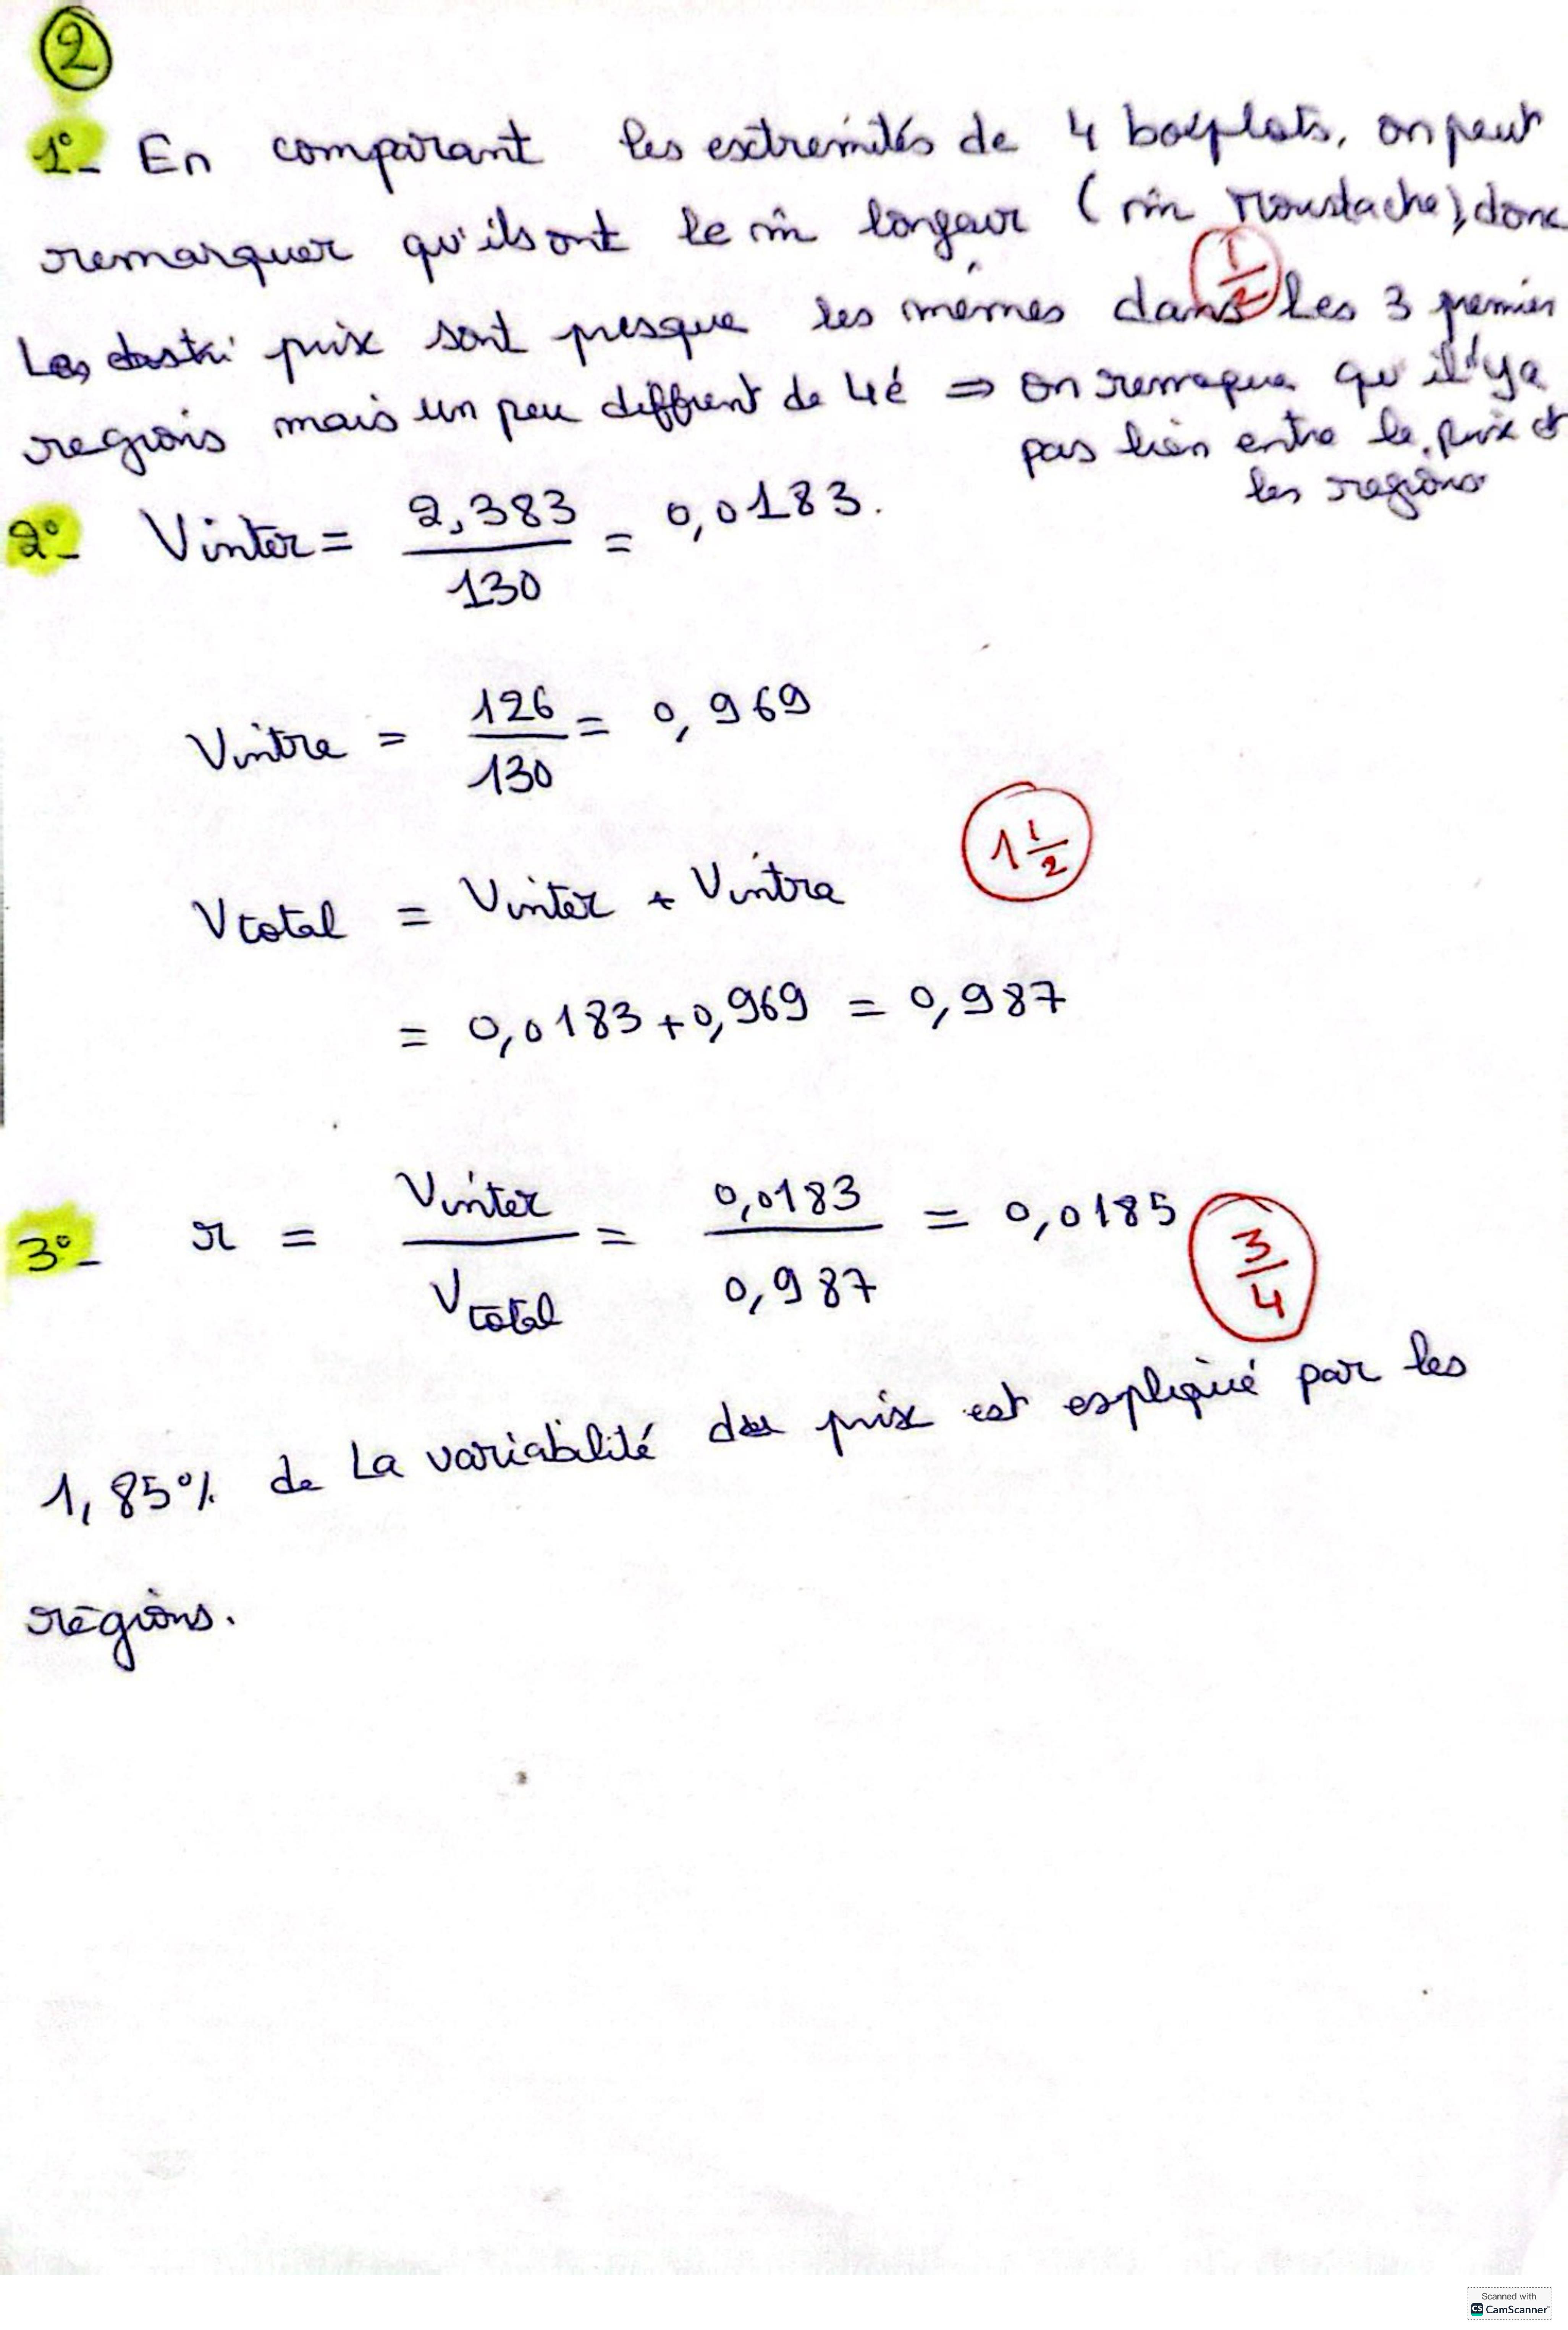 2
1°- En comparant les extremités de 4 boxplots, on peut
remarquer qu'ils ont le m̂ longeur (m̂ moustache), donc
1/2
Les prix sont presque les mêmes dans les 3 premier
regions mais un peu diffrent de 4é ⇒ on remaque qu'il'ya
pas lien entre le prix et
les regions
2°- Vinter = 2,383 / 130 = 0,0183.
Vintra = 126 / 130 = 0,969
1 1/2
Vtotal = Vinter + Vintra
= 0,0183 + 0,969 = 0,987
3°- r = Vinter / Vtotal = 0,0183 / 0,987 = 0,0185
3/4
1,85% de La variabilité du prix est expliqué par les
régions.
Scanned with
CS CamScanner